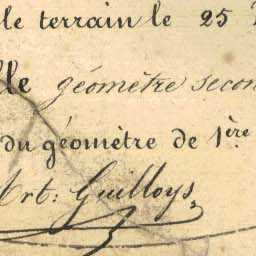 le terrain le 25
lle géomètre secon
du géomètre de 1ère
Art: Guilloys